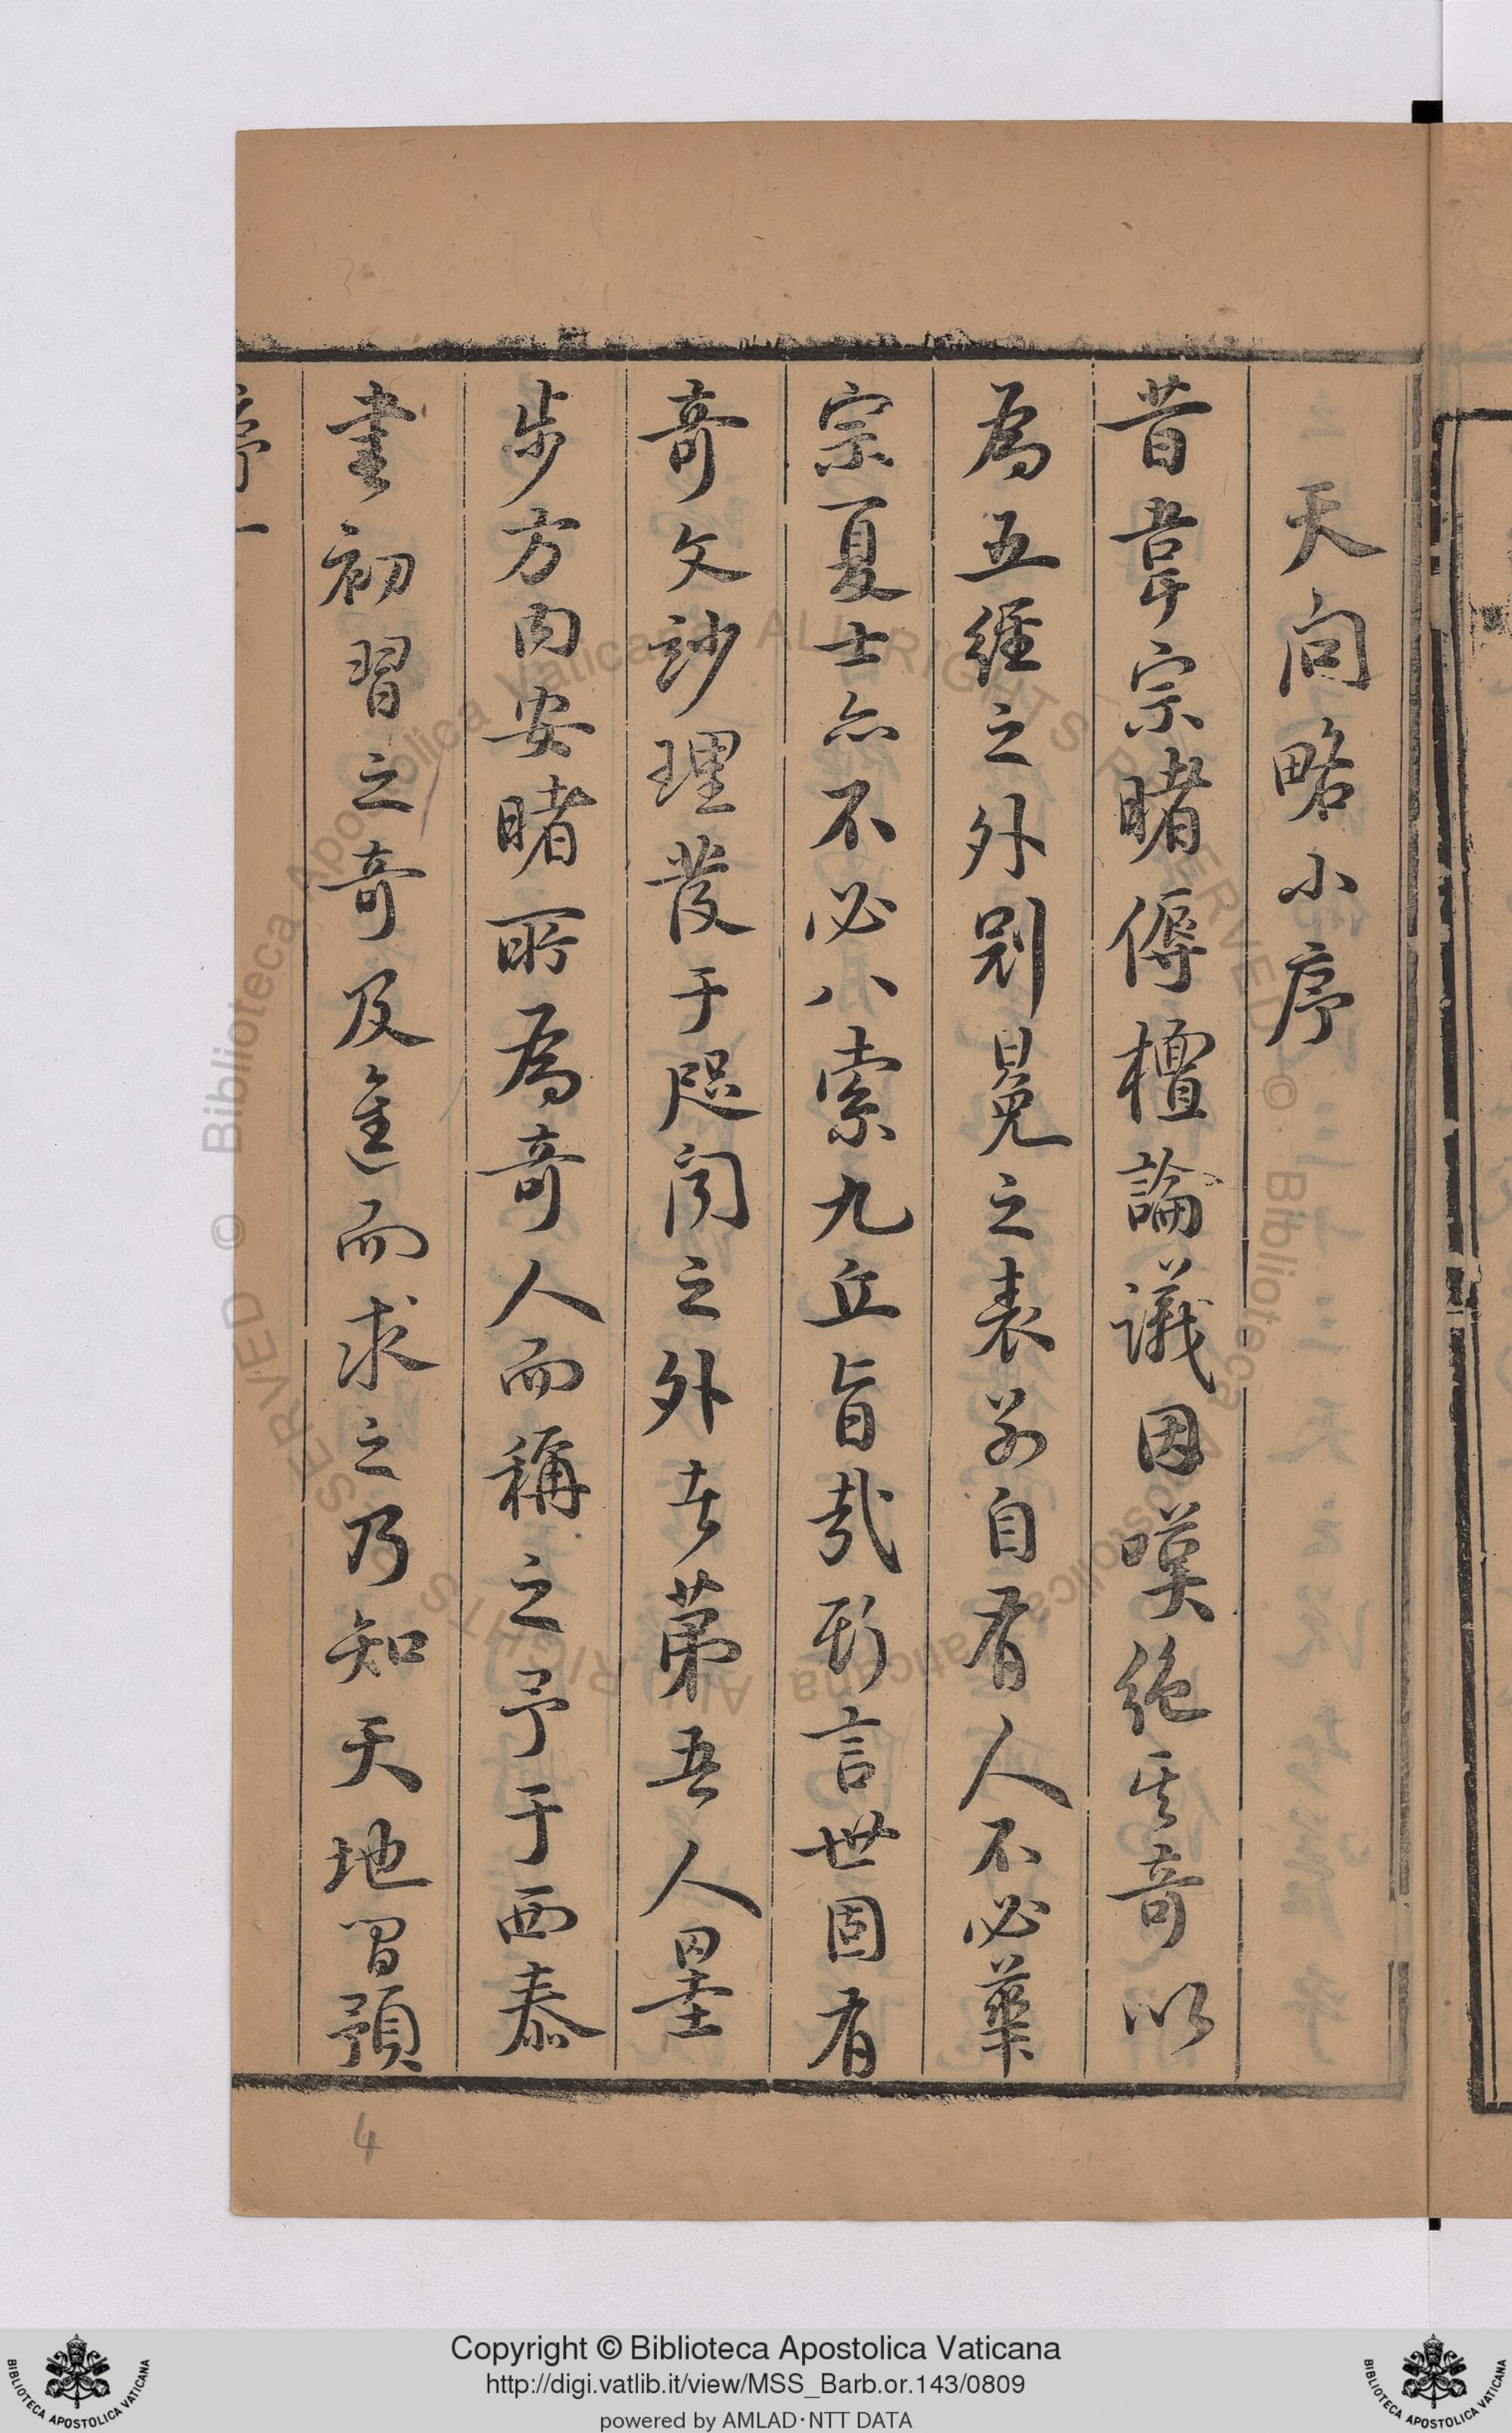 天問略小序
昔韋宗睹傉檀論議因嘆絕其奇以
為五經之外冠冕之表別自有人不必華
宗夏士亦不必八索九丘旨哉斯言世固有
奇文妙理發于咫聞之外者第吾人墨
步方內安睹所為奇人而稱之予于西泰
書初習之奇及進而求之乃知天地間預
序 一
4
Copyright © Biblioteca Apostolica Vaticana
http://digi.vatlib.it/view/MSS_Barb.or.143/0809
powered by AMLAD·NTT DATA
BIBLIOTECA APOSTOLICA VATICANA
BIBLIOTECA APOSTOLICA VATICANA
© Biblioteca Apostolica Vaticana ALL RIGHTS RESERVED
© Biblioteca Apostolica Vaticana ALL RIGHTS RESERVED